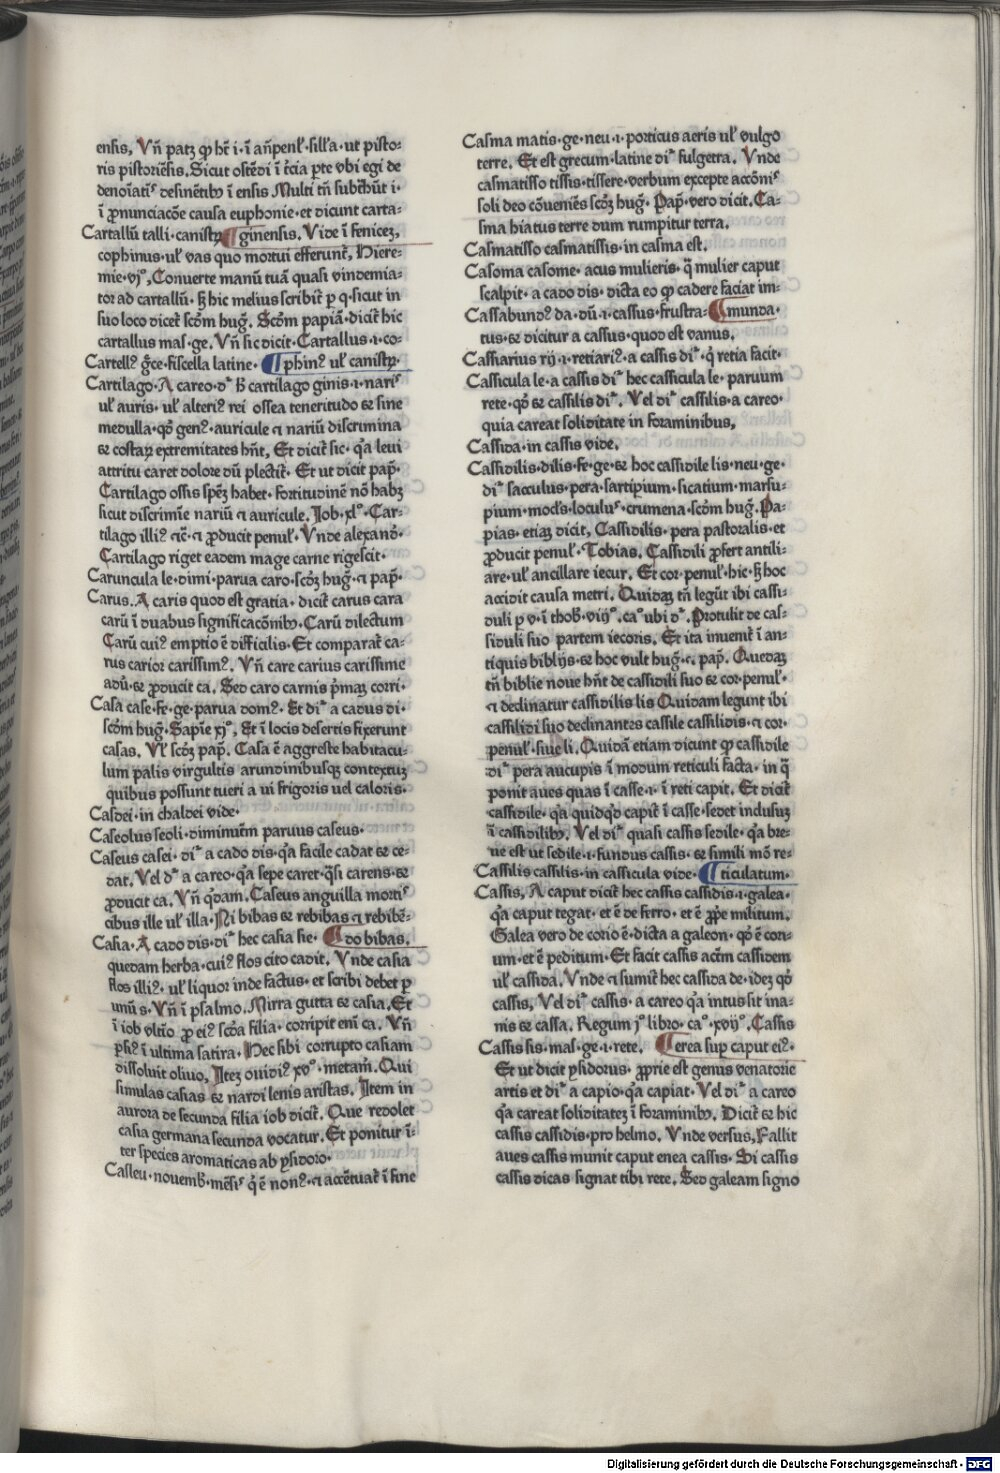 ensis, Vñ patꝫ ꝙ hƺ i · ī añpenlˀ · silľa · ut pisto⸗
ris pistoriēsis. Sicut ostēdi ī ťcia ꝑte vbi egi de
denoīatiˢ desinētibꝰ ī ensis Multi tñ subťhūt i ·
ī ꝓnunciacōe causa euphonie · et dicunt carta⸗
Cartallū talli · canistꝝ ¶ ginensis. Vide ī fenicez,
cophinus · ulˀ vas quo mortui efferunť, Hiere⸗
mie · vjº, Conuerte manū tuā quasi vindemia⸗
tor ad cartallū · hic melius scribiť ꝑ q · sicut in
suo loco diceť scđm hug̃. Scđm papiā · diciť hic
cartallus mas · ge. Vñ sic dicit · Cartallus · ı · co⸗
Cartellꝰ g̃ce · fiscella latine · ¶ phinꝰ ulˀ canistꝝ ·
Cartilago · A careo · dʳ ħ cartilago ginis · ı · nariˢ
ulˀ auris · ulˀ alteriꝰ rei ossea teneritudo ⁊ sine
medulla · qđ genꝰ · auricule ⁊ nariū discrimina
⁊ costaꝝ extremitates hñt, Et diciť sic · q̃a leui
attritu caret dolore dū plectiť · Et ut dicit pap̃ ·
Cartilago ossis spēꝫ habet · fortitudinē nō habꝫ
sicut discrimīe nariū ⁊ auricule. Job · xlº · Car⸗
tilago illiꝰ ⁊č · ⁊ ꝓducit penulˀ · Vnde alexand̃ ·
Cartilago riget eadem mage carne rigescit ·
Caruncula le · dimi · parua caro · scđꝫ hug̃ · ⁊ pap̃ ·
Carus. A caris quod est gratia · diciť carus cara
carū ī duabus significacōnibꝰ · Carū dilectum
Carū cuiꝰ emptio ē difficilis · Et comparať ca⸗
rus carior carissimꝰ. Vñ care carius carissime
adũ · ⁊ ꝓducit ca. Sed caro carnis p̃maꝫ corri ·
Casa case · fe · ge · parua domꝰ. Et diʳ a cadus di ·
scđm hug̃ · Sapīe xjº, Et ī locis desertis fixerunt
casas. Vlˀ scđꝫ pap̃. Casa ē aggreste habitacu⸗
lum palis virgultis arundinibusqꝫ contextuꝫ
quibus possunt tueri a ui frigoris uel caloris ·
Casdei · in chaldei vide ·
Caseolus seoli · diminutm̃ paruus caseus ·
Caseus casei · diʳ a cado dis · q̃a facile cadat ⁊ ce⸗
dat. Vel dʳ a careo · q̃a sepe caret · q̃si carens ⁊
ꝓducit ca. Vñ q̃dam. Caseus anguilla mortiˢ
cibus ille ulˀ illa · Ni bibas ⁊ rebibas ⁊ rebibē⸗
Casia · A cado dis · diʳ hec casia sie · ¶ do bibas.
quedam herba · cuiꝰ flos cito cadit. Vnde casia
flos illiꝰ · ulˀ liquor inde factus · et scribi debet ꝑ
unū s · Vñ ī psalmo. Mirra gutta ⁊ casia. Et
ī iob vltio ꝓ eiꝰ scđa filia · corripit em̄ ca. Vñ
ꝑsiꝰ ī ultima satira. Hec sibi corrupto casiam
dissoluit oliuo, Iteꝫ ouidiꝰ xvº · metam̃. Qui
simulas casias ⁊ nardi lenis aristas. Item in
aurora de secunda filia iob diciť. Que redolet
casia germana secunda vocatur. Et ponitur ī⸗
ter species aromaticas ab ysidoro ·
Casleu · nouemb̃ · mēsiˢ q̃ ē nonꝰ · ⁊ accētuať ī fine
Casma matis · ge · neu · ı · porticus aeris ulˀ vulgo
terre. Et est grecum · latine diʳ fulgetra. Vnde
casmatisso tissis · tissere · verbum excepte accōniˢ
soli deo cōueniēs scđꝫ hug̃. Pap̃ · vero dicit. Ca⸗
sma hiatus terre dum rumpitur terra.
Casmatisso casmatissis · in casma est.
Casoma casome · acus mulieris · q̃ mulier caput
scalpit · a cado dis · dicta eo ꝙ cadere faciat im⸗
Cassabundꝰ da · dū · ı · cassus · frustra⸗ ¶ munda ·
tus · ⁊ dicitur a cassus · quod est vanus.
Cassiarius rij · ı · retiariꝰ · a cassis diʳ · q̃ retia facit ·
Cassicula le · a cassis diʳ hec cassicula le · paruum
rete · qđ ⁊ cassilis diʳ. Vel diʳ cassilis · a careo ·
quia careat soliditate in foraminibus,
Cassida · in cassis vide.
Cassidilis · dilis · fe · ge · ⁊ hoc cassidile lis · neu · ge ·
diʳ sacculus · pera · sartipium · sicatium · marsu⸗
pium · modꝰs · loculuˢ · crumena · scđm hug̃. Pa⸗
pias · etiaꝫ dicit, Cassidilis · pera pastoralis · et
ꝓducit penulˀ · Tobias. Cassidili ꝓfert antili⸗
are · ulˀ ancillare iecur. Et cor · penulˀ · hic · ꝫ hoc
accidit causa metri. Quidaꝫ tñ legūt ibi cassi⸗
duli ꝑ v · ī thob̃ · viijº · caº ubi dʳ. Protulit de cas⸗
siduli suo partem iecoris. Et ita inueniť ī an⸗
tiquis biblijs · ⁊ hoc vult hug̃ · ⁊ pap̃. Quedaꝫ
tñ biblie noue hñt de cassidili suo ⁊ cor · penulˀ ·
⁊ declinatur cassidilis lis Quidam legunt ibi
cassilidi suo declinantes cassile cassilidis · ⁊ cor ·
penulˀ · siue li. Quidā etiam dicunt ꝙ cassidile
diʳ pera aucupis ī modum reticuli facta · in q̃
ponit aues quas ī casse · ı · ī reti capit. Et diciť
cassidile · q̃a quidq̃d capiť ī casse · sedet indusuꝫ
ī cassidilibꝰ. Vel diʳ quasi cassis sedile · q̃a bre⸗
ue est ut sedile · ı · fundus cassis · ⁊ simili mō re⸗
Cassilis cassilis · in cassicula vide · ¶ ticulatum ·
Cassis, A caput diciť hec cassis cassidis · ı · galea ·
q̃a caput tegat · et ē de ferro · et ē ꝓpe militum.
Galea vero de corio ē · dicta a galeon · qđ ē cori⸗
um · et ē peditum · Et facit cassis actm̃ cassidem
ulˀ cassida. Vnde ⁊ sumiť hec cassida de · ideꝫ qđ
cassis, Vel diʳ cassis · a careo q̃a intus sit ina⸗
nis ⁊ cassa. Regum jº libro · caº · xvijº. Cassis
Cassis sis · mas · ge · ı · rete. ¶ erea suꝑ caput eiꝰ ·
Et ut dicit ysidorus · ꝓprie est genus venatorie
artis et diʳ a capio · q̃a capiat · Vel diʳ a careo
q̃a careat soliditateꝫ ī foraminibꝰ. Diciť ⁊ hic
cassis cassidis · pro helmo. Vnde versus, Fallit
aues cassis munit caput enea cassis. Si cassis
cassis dicas signat tibi rete. Sed galeam signo
Digitalisierung gefördert durch die Deutsche Forschungsgemeinschaft - DFG